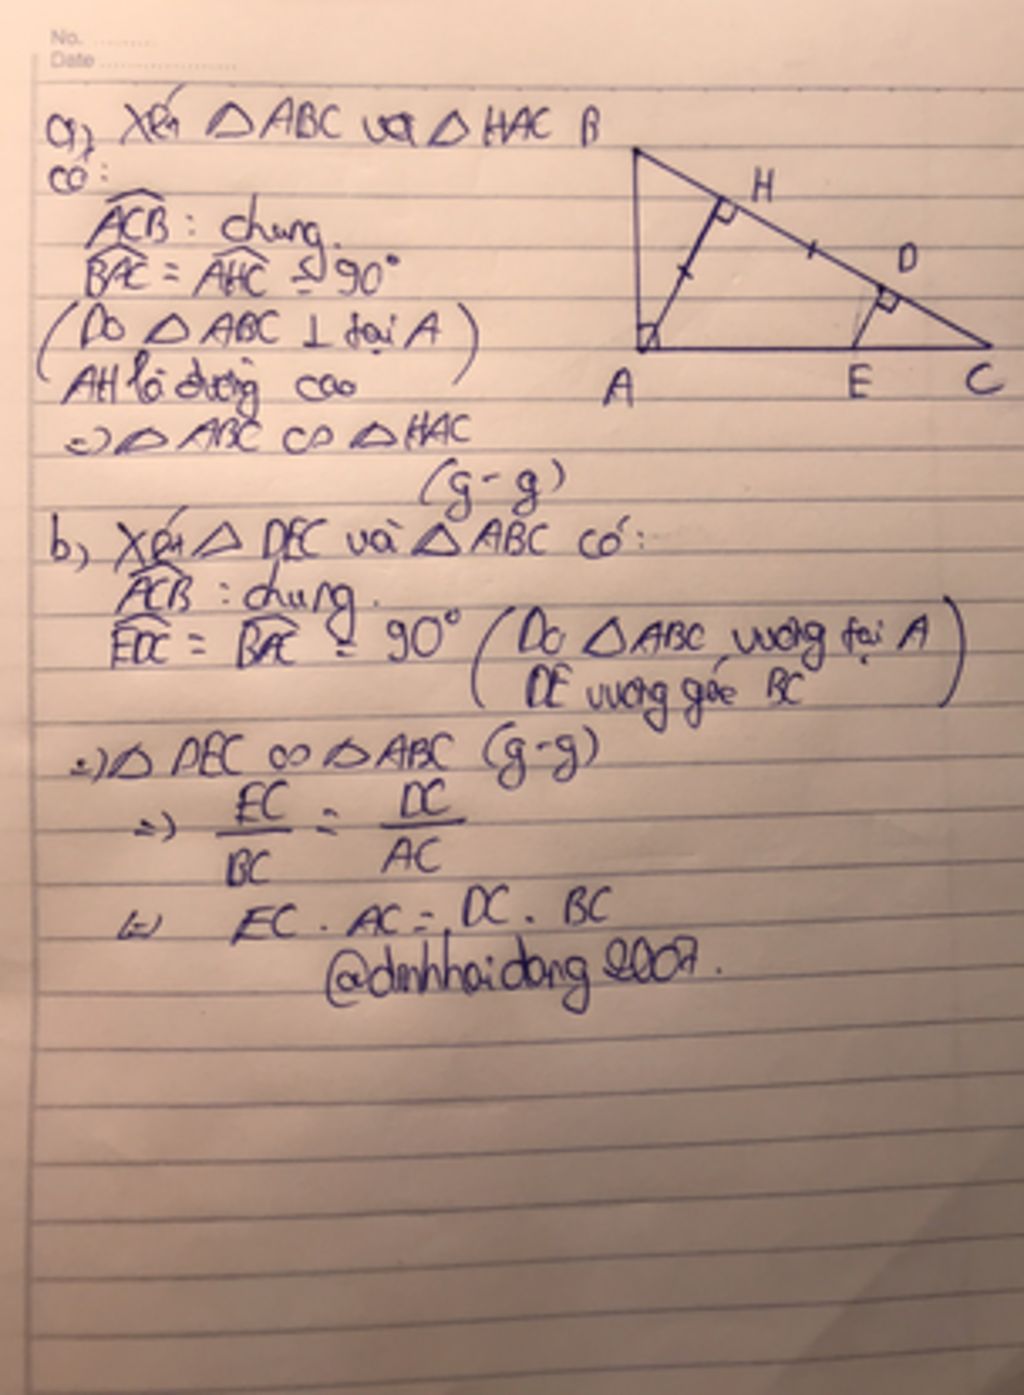 No. ............
Date .....................
a, Xét △ ABC và △ HAC
có:
ACB : chung.
BAC = AHC = 90°
(Do △ ABC ⊥ tại A)
AH là đường cao
=> △ ABC ∽ △ HAC
(g-g)
B
H
D
A
E
C
b, Xét △ DEC và △ ABC có:
ACB : chung.
EDC = BAC = 90° (Do △ ABC vuông tại A
DE vuông góc BC)
=> △ DEC ∽ △ ABC (g-g)
=> EC/BC = DC/AC
<=> EC . AC = DC . BC
@dinhhaidang2007.